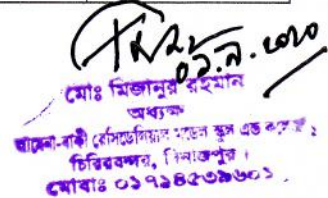 ০১.১.২০২০
মোঃ মিজানুর রহমান
অধ্যক্ষ
আমেনা-বাকী রেসিডেন্সিয়াল মডেল স্কুল এন্ড কলেজ
চিরিরবন্দর, দিনাজপুর।
মোবাঃ ০১৭১৪৫৩৯৬০১